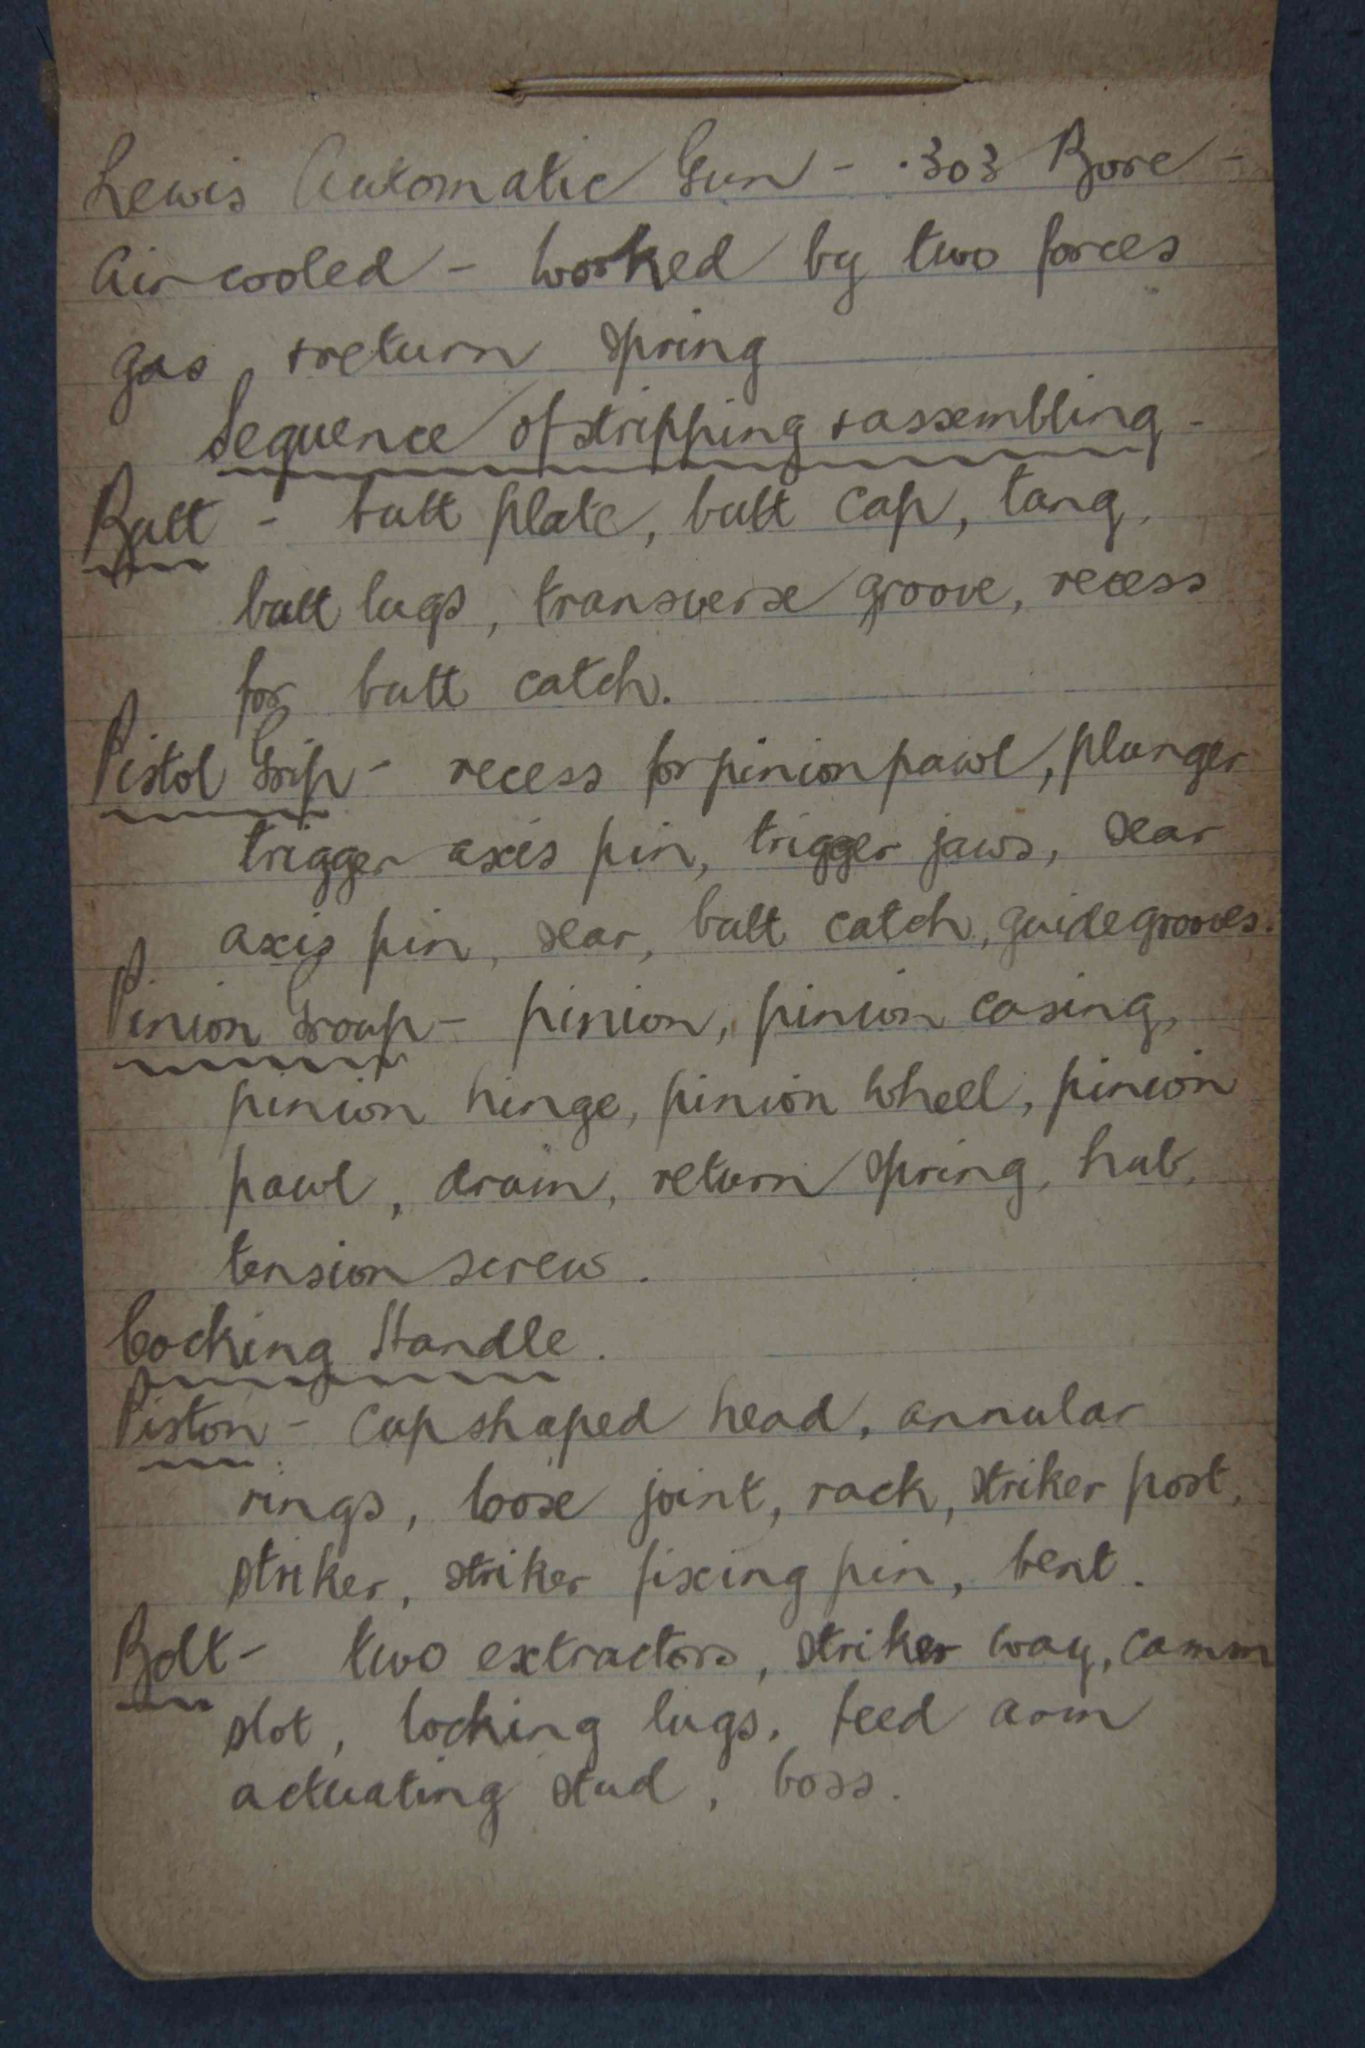 Lewis Automatic Gun - .303 Bore -
Air cooled - worked by two forces
gas + return spring
Sequence of stripping + assembling -
Butt - butt plate, butt cap, tang,
butt lugs, transverse groove, recess
for butt catch.
Pistol Grip - recess for pinion pawl, plunger
trigger axis pin, trigger jaws, sear
axis pin, sear, butt catch, guide grooves.
Pinion Group - pinion, pinion casing,
pinion hinge, pinion wheel, pinion
pawl, drum, return spring, hub,
tension screw.
Cocking Handle.
Piston - cup shaped head, annular
rings, loose joint, rack, striker post,
striker, striker fixing pin, bent.
Bolt - two extractors, striker way, camm
slot, locking lugs, feed arm
actuating stud, boss.